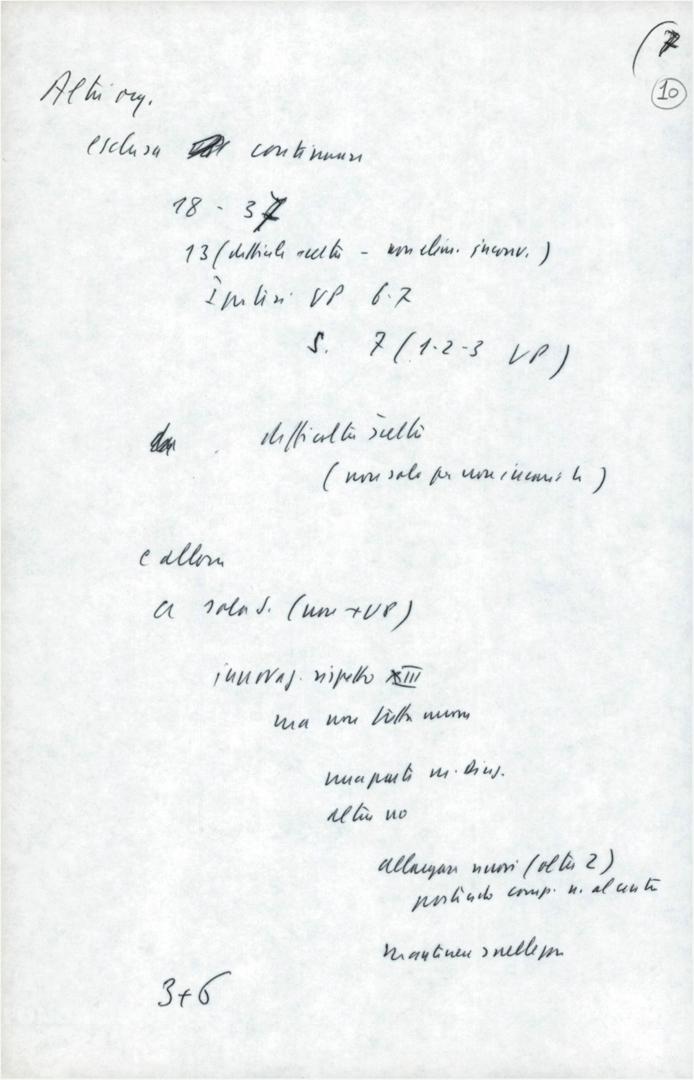 (7
10
Altri org.
esclusa continuare
18 - 37
13 (difficile scelta - non elim. inconv.)
Ipotesi VP 6-7
S. 7 (1-2-3 VP)
difficoltà scelta
(non solo per non incomp.)
e allora
a solo S. (non + VP)
innovaz. rispetto XIII
ma non tutta nuova
una parte m. Dir.
altra no
allargare nuovi (oltre 2)
portando comp. n. al cento
mantenere snellezza
3+6